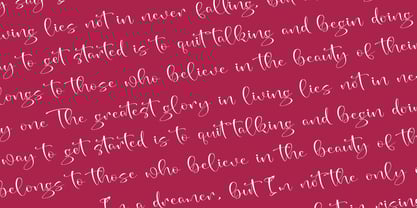 living lies not in never falling, but
way to get started is to quit talking and begin doing
belongs to those who believe in the beauty of their
one The greatest glory in living lies not in ne
way to get started is to quit talking and begin doin
belongs to those who believe in the beauty of the
I'm a dreamer, but I'm not the only